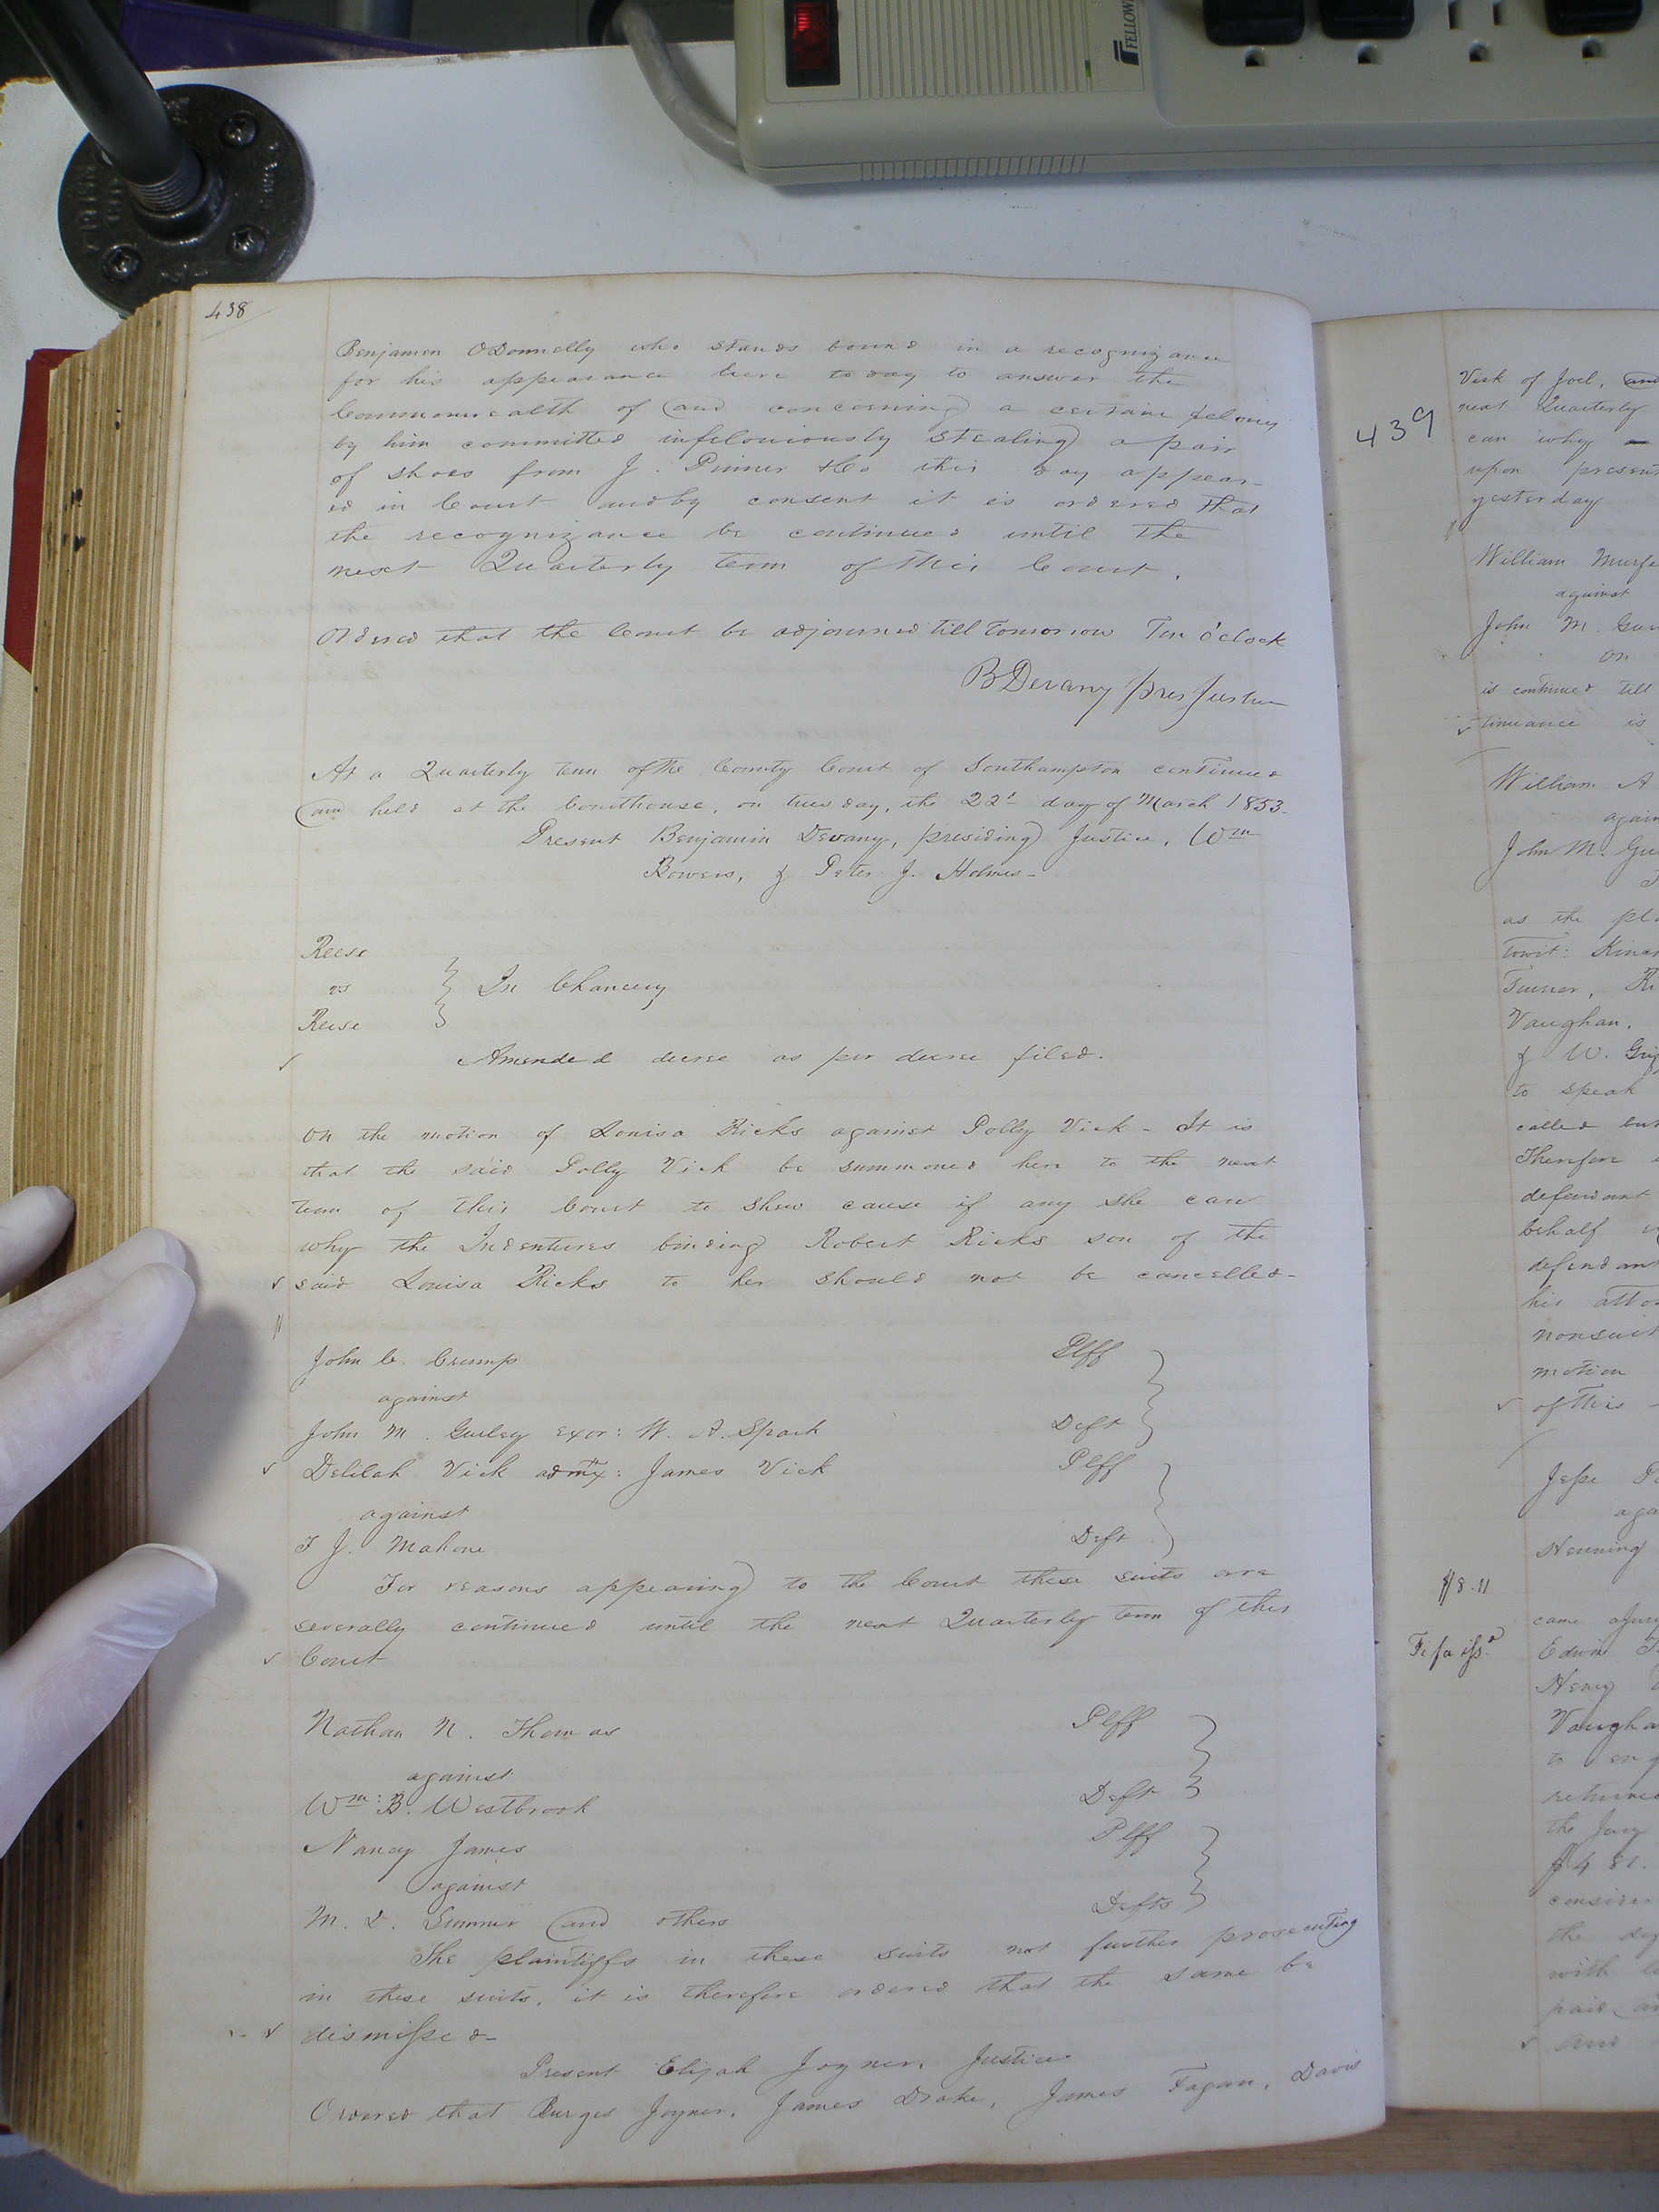 FELLOW
438
Benjamin ODonnelly who stands bound in a recognizance
for his appearance here to day to answer the
Commonwealth of and concerning a certain felony
by him committed infeloniously stealing a pair
of shoes from J. Pinner & Co this day appear-
ed in Court and by consent it is ordered that
the recognizance be continued until the
next Quarterly term of this Court.
Ordered that the Court be adjourned till tomorrow Ten o'clock
B Devany pres Justice
At a Quarterly term of the County Court of Southampton continued
and held at the Courthouse, on tuesday, the 22d day of March 1853.
Present Benjamin Devany, presiding Justice, Wm
Bowers, & Peter J. Holmes-
Reese
vs
In Chancery
Reese
Amended decree as per decree filed.
On the motion of Louisa Ricks against Polly Vick - It is
that the said Polly Vick be summoned here to the next
term of this Court to shew cause if any she can
why the Indentures binding Robert Ricks son of the
said Louisa Ricks to her should not be cancelled-
John C. Crump Plff
against
John M. Gurley exor: W. A. Spark Deft
Delilah Vick admtx: James Vick Plff
against
T J. Mahone Deft
For reasons appearing to the Court these suits are
severally continued until the next Quarterly term of this
Court
Nathan N. Thomas Plff
against
Wm: B. Westbrook Deft
Nancy James Plff
against
M. D. Sumner and others Defts
The plaintiffs in these suits not further prosecuting
in these suits, it is therefore ordered that the same be
dismissed-
Present Elijah Joyner, Justice
Ordered that Burges Joyner, James Drake, James Fagan, Davis
439
Vick of Joel, and
next Quarterly
can why
upon present
yesterday
William Murfe
against
John M. Gur
On
is continued till
tinuance is
William A
again
John M. Gu
as the pla
towit: Kinar
Turner, Ri
Vaughan,
& W. Grig
to speak
called but
Therefore
defendant
behalf
defendant
his atto
nonsuit
motion
of this
Jesse
aga
Henning
$8.11
came a Jury
Fi fa issd
Edwin T
Henry
Vaugha
to enq
returned
the Jury
$481.
consider
the de
with
paid an
and